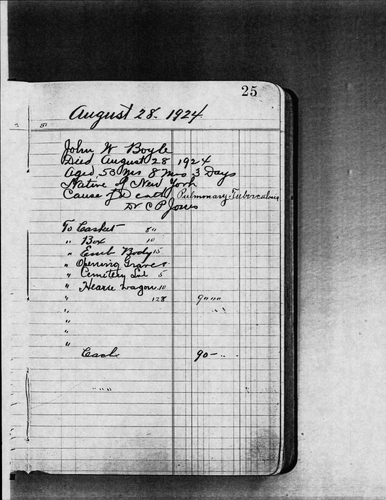 25
August 28. 1924
John W Boyle
Died August 28 1924
Aged 53 Yrs 8 Mos 3 Days
Native of New York
Cause of Death Pulmonary Tuberculosis
Dr C P Jones
To Casket
" Box 10
" Emb Body 15
" Opening Grave
" Cemetery Lot 5
" Hearse Wagon 10
" 128
"
"
"
Cash 90-
" " "